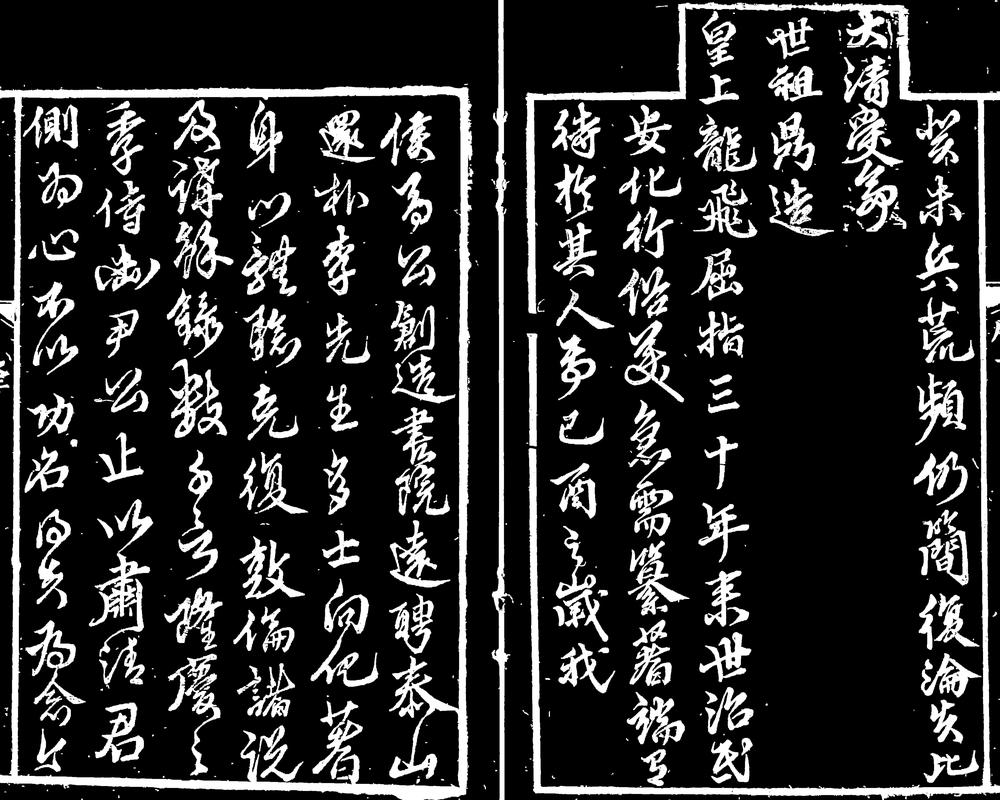 癸未兵荒頻仍簡復淪失比
大清受命
世祖鼎造
皇上龍飛屈指三十年来世治民
安化行俗美急需纂著端有
待於其人而己酉之歲我
侯馬公創造書院遠聘泰山
還朴李先生多士向化著
身以體驗克復敦倫講説
及講餘錄數千言隆慶之
季侍御尹公止以肅清君
側為心不以功名得失為念今